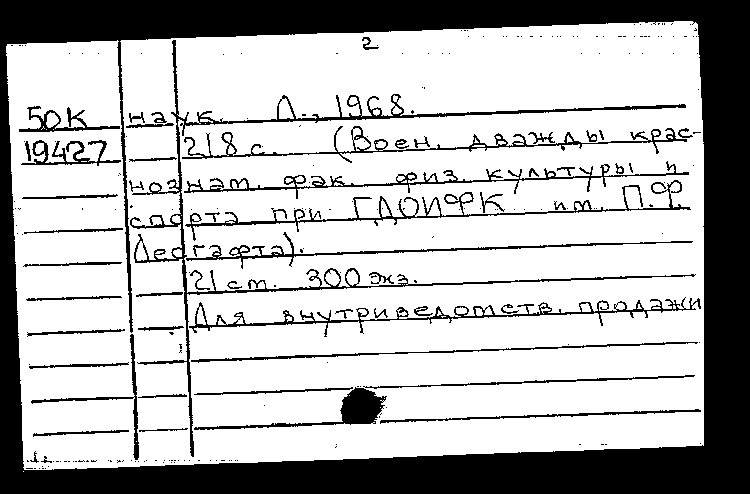 2
50К наук. Л., 1968.
19427 218 с. (Воен. дважды крас-
нознам. фак. физ. культуры и
спорта при ГДОИФК им. П.Ф.
Лесгафта).
21 см. 300 экз.
Для внутриведомств. продажи